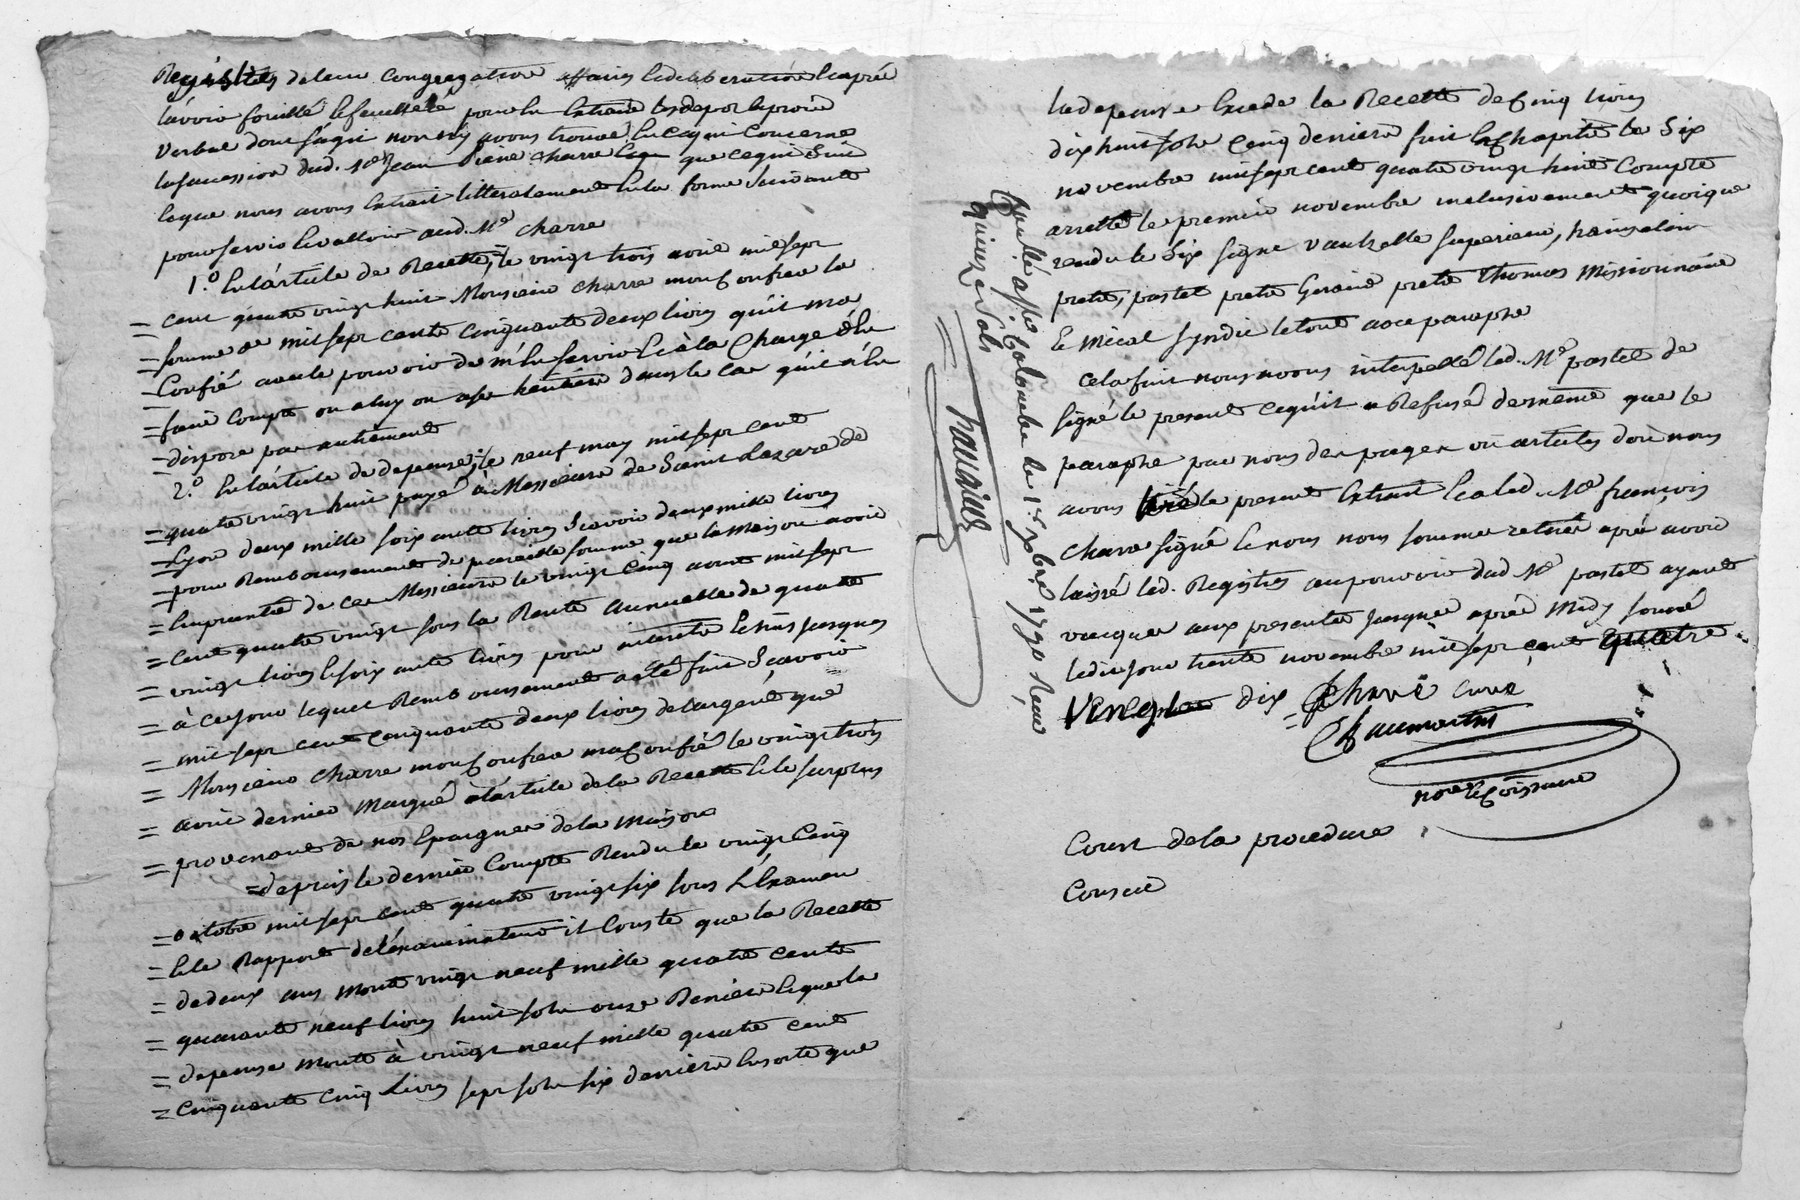 Registres de leur congregation affaires et deliberation et après
l'avoir fouillé et feuilleté pour en extraire les depot et procès
verbal dont s'agit nous n'y avons trouvé en ce qui concerne
la sucession dud. Mre Jean Pierre charre que ce qui suit
leque nous avons extrait litteralement en la forme suivante
pour servir et valloir aud. Mre charre
1.º En l'article de Recette, le vingt trois avril mil sept
= cent quatre vingt huit Monsieur charre mon Confrere la
= somme de mil sept cents cinquante deux livres qu'il m'a
= Confié avec le pouvoir de m'en servir et à la Charge d'en
= faire compte ou a luy ou a ses heritiers dans le cas qu'il n'en
= dispose pas autrement
2.º En l'article de depense, le neuf may mil sept cent
= quatre vingt huit payé à Messieurs de Saint Lazare de
= Lyon deux mille soixante livres Scavoir deux mille livres
= pour Remboursement de pareille somme que la Maison avoit
= Empruntée de ces Messieurs le vingt Cinq avril mil sept
= cent quatre vingt sous la Rente Annuelle de quatre
= vingt livres et soixante livres pour interets Echus jusques
= à ce jour lequel Remboursement a été fait Sçavoir
= mil sept cent cinquante deux livres de l'argent que
= Monsieur charre mon Confrere m'a Confié le vingt trois
= avril dernier Marqué à l'article de la Recette et le surplus
= provenant de nos Epargnes de la Maison
= depuis le dernier Compte Rendu le vingt Cinq
= octobre mil sept cent quatre vingt six sous L'Examen
= et le Rapport de l'examinateur il Conste que la Recette
= de deux ans monte vingt neuf mille quatre cents
= quarante neuf livres huit sols onze Deniers et que la
= depense monte à vingt neuf mille quatre cent
= cinquante cinq Livres sept sols six deniers En sorte que
Controllé à Ste Colombe le 1er Xbre 1790 Reçu
quinze sols
la depense Excede la Recette de Cinq livres
dix huit sols Cinq deniers fait En Chapitre le Six
novembre mil sept cent quatre vingt huit Compte
arretté le premier novembre inclusivement quoique
rendu le Six signé Vautrelle superieur,
pretre, pastel pretre Geraud pretre Thomas Missionnaire
Et Micol Syndic le tout avec paraphe
Cela fait nous avons interpellé led. Mre pastel de
signé le present ce qu'il a Refusé de meme que le
paraphe par nous des pages ou articles dont nous
avons tiré le present Extrait Et a led. Mre françois
Charre signé Et nous nous somme retiré après avoir
laissé led. Registres au pouvoir dud. Mre pastel ayant
vacquer aux presentes jusques après Midy sonné
le dit jour trente novembre mil sept cent quatre
Vingt dix = Charre Curé
Chaumartin
nore et Commissaire
Cout de la procedure
Conseil